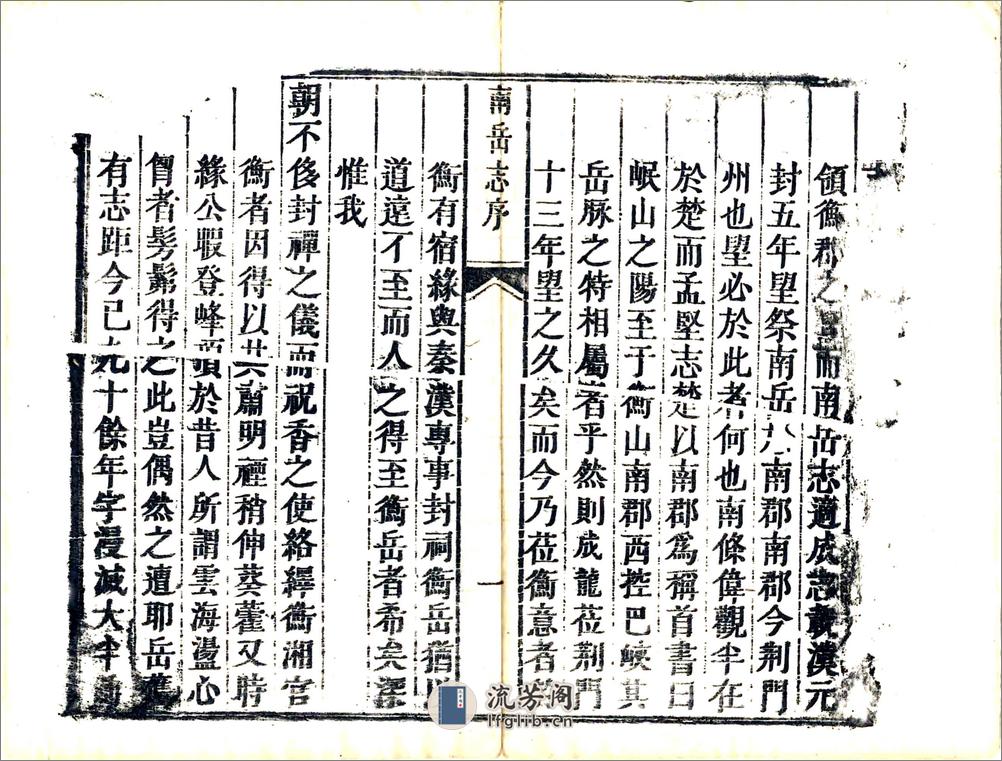 領衡郡之而南岳志適成志載漢元
封五年朢祭南岳於南郡南郡今荆門
州也朢必於此者何也南條偉觀半在
於楚而孟堅志楚以南郡爲稱首書曰
岷山之陽至于衡山南郡西控巴峽其
岳脉之特相屬者乎然則成龍莅荆門
十三年朢之久矣而今乃莅衡意者
南岳志序
一
衡有宿緣與秦漢專事封祠衡岳猶以
道遠不至而人之得至衡岳者希矣
惟我
朝不侈封禪之儀而祝香之使絡繹衡湘官
衡者因得以共肅明禋稍伸葵藿又時
緣公暇登峰頂於昔人所謂雲海盪心
曾者髣髴得之此豈偶然之遭耶岳舊
有志距今已九十餘年字漫滅大半
流芳阁
lfglib.cn